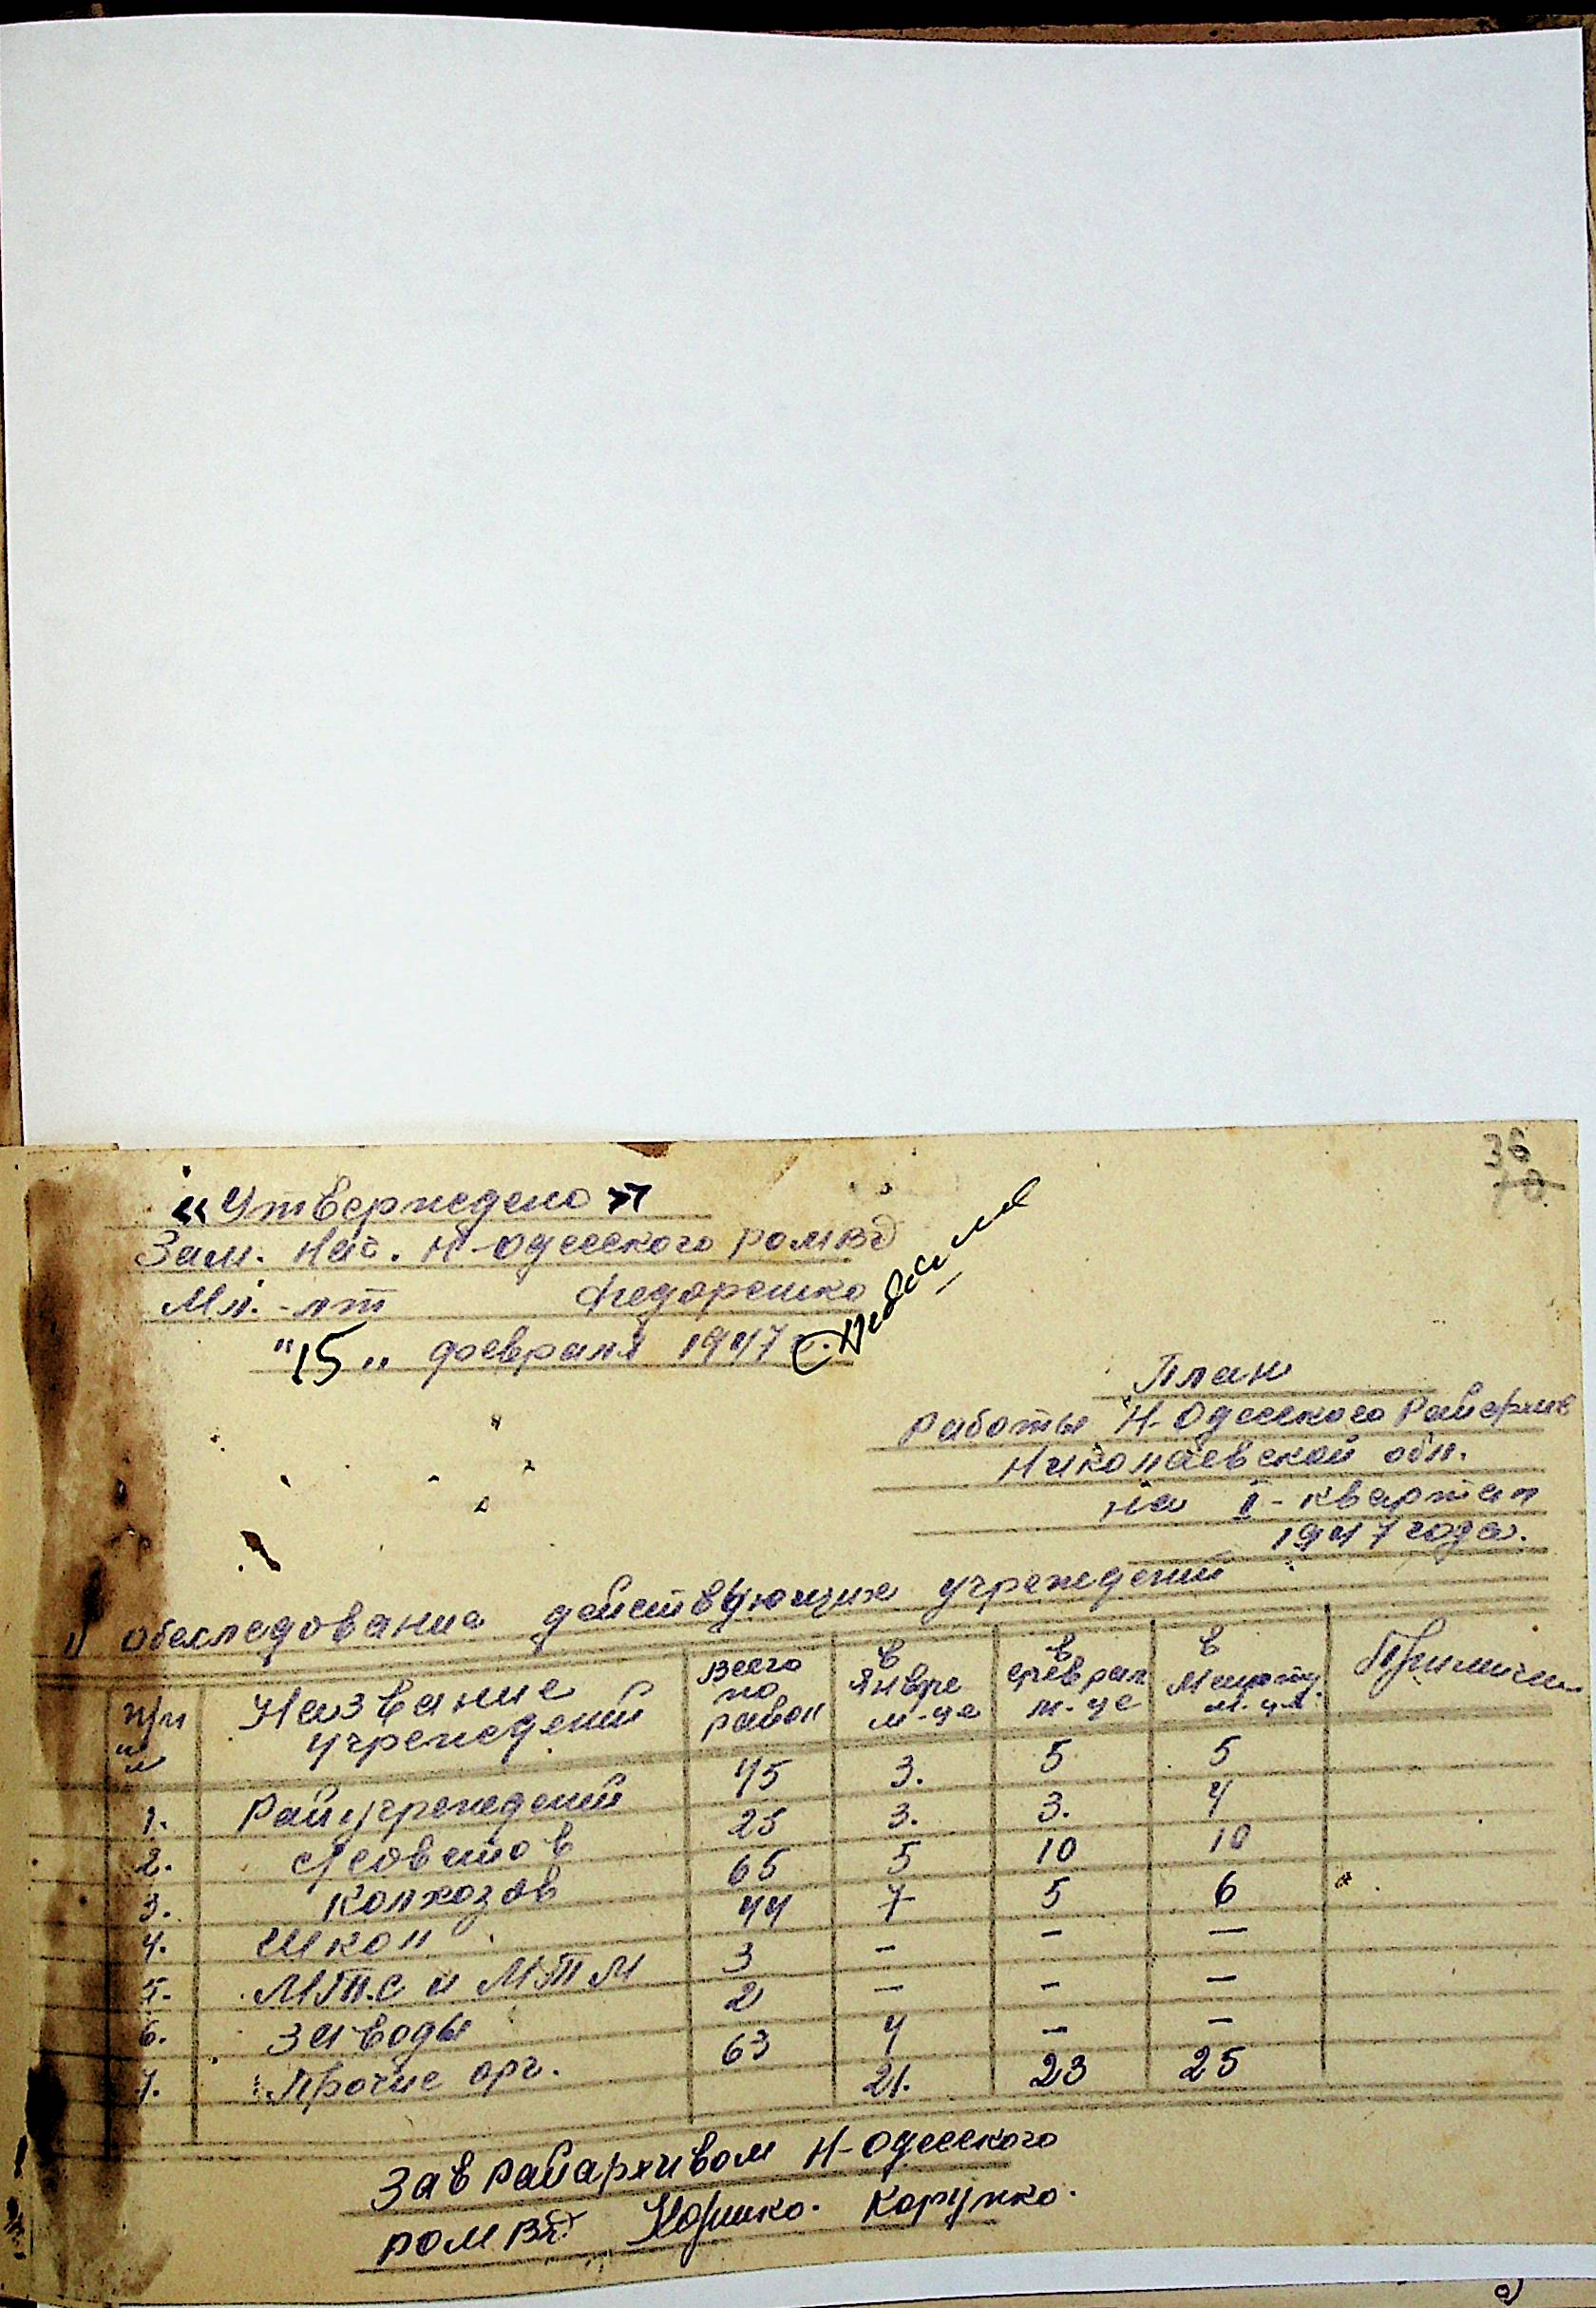 36
70
«Утверждено»
Зам. Нач. Н-Одесского РОМВД
Мл.-лт Федоренко
"15" февраля 1947 г.
План
работы Н-Одесского Райархив
Николаевской обл.
на I-квартал
1947 года.
1) Обследование действующих учреждений
п/п Название учреждений Всего по район в Январе м-це в феврал м-це в Марту м-ця. Примечан
1. Райучреждений 45 3. 5 5
2. с/советов 25 3. 3. 4
3. колхозов 65 5 10 10
4. Школ 44 7 5 6
5. МТС и МТМ 3 - - -
6. Заводы 2 - - -
7. Прочие орг. 63 4 - -
21. 23 25
Зав Райархивом Н-Одесского
РОМВД Корунко.